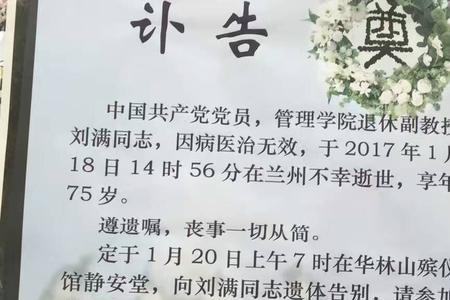 讣告
奠
中国共产党党员，管理学院退休副教授
刘满同志，因病医治无效，于2017年1月
18日14时56分在兰州不幸逝世，享年
75岁。
遵遗嘱，丧事一切从简。
定于1月20日上午7时在华林山殡仪
馆静安堂，向刘满同志遗体告别，请参加